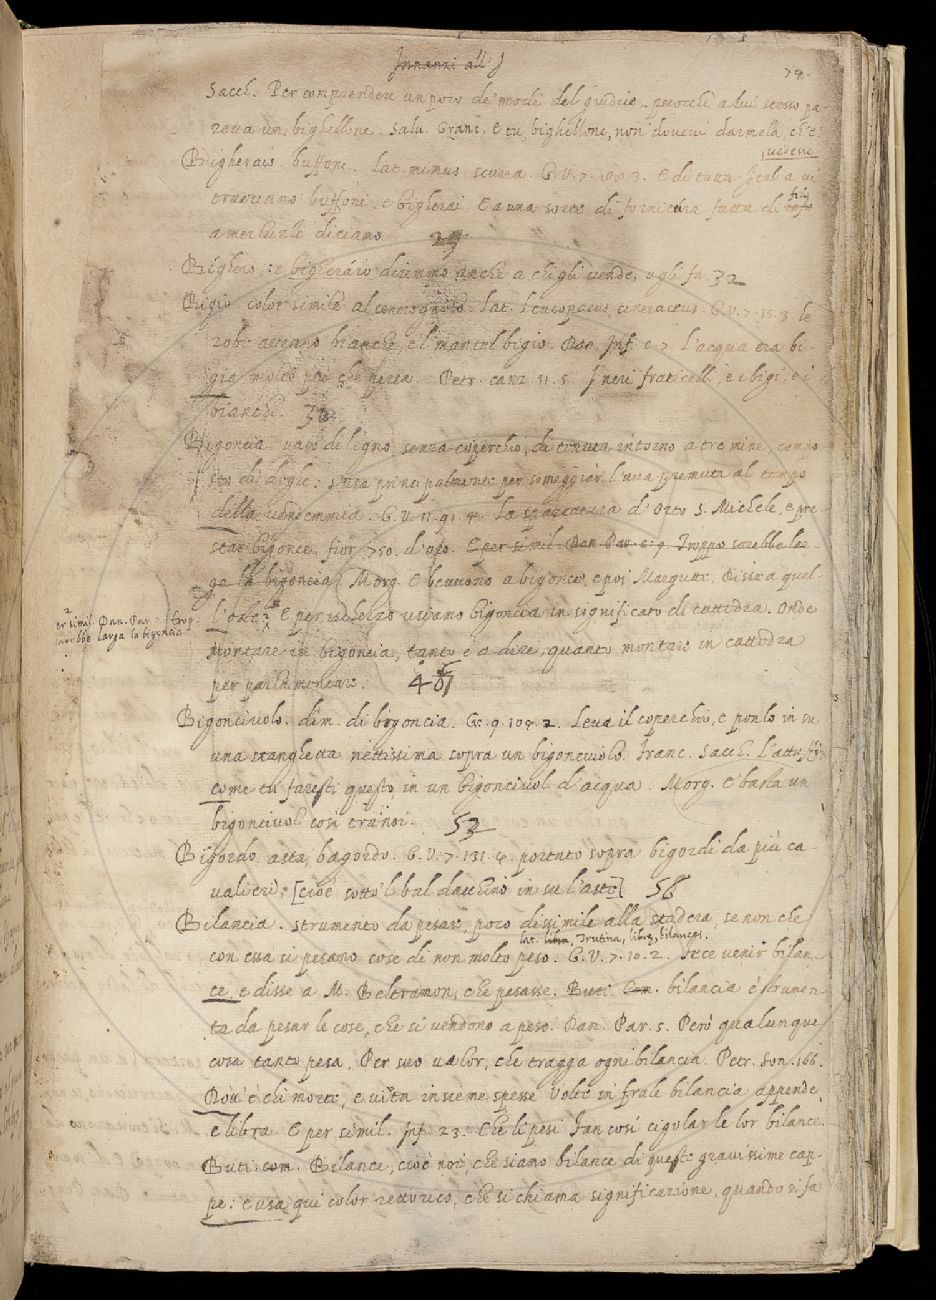 Innanzi all' I
74.
Sacch. Per comprendere un poco de' modi del giudice, perocchè a lui stesso pa-
reva un bighellone. Salv. Granc. E tu, bighellone, non dovevi darmela, ch' e'
vedesse
Bigheraio. buffone. lat. mimus, scurra. G. V. 7. 3. E di tutta Italia vi
traevano buffoni, e bigherai. E a una sorte di fornitura fatta di refe filo
a merluzzi diciamo 29
Bighero: e bigheraio diremmo anche a chi gli vende, o gli fa. 32
Bigio. color simile al cenerognolo. lat. leucophaeus, cineraceus. G. V. 7. 15. 3. le
robe aveano bianche, e 'l mantel bigio. Dan. Inf. c. 7. L'acqua era bi-
gia molto più che persa. Petr. canz. 11. 5. I neri fraticelli, e i bigi, e i
bianchi.
Bigoncia. vaso di legno senza coperchio, di tenuta intorno a tre mine, compo
sto di doghe: usasi principalmente per someggiar l'uva premuta al tempo
della vendemmia. G. V. 11. 91. 4. La spazzatura d'Orto S. Michele, e pre-
star bigonce, fior. 750. d'oro. E per simil. Dan. Par. c. 9. Troppo sarebbe lar-
ga la bigoncia. Morg. E bevvono a bigonce, e poi Margutte, Disse a quel-
l'oste: E per ischerzo usiamo bigoncia in significato di cattedra. Onde
er simil. Dan. Par. 9. Trop.
sarebbe larga la bigoncia
Montare in bigoncia, tanto è a dire, quanto montare in cattedra
per parlamentare.
Bigonciuolo. dim. di bigoncia. Cr. 9. 104. 2. Leva il coperchio, e ponlo in su
una stanghetta nettissima sopra un bigonciuolo. Franc. Sacch. L'attuffò
come tu faresti questo, in un bigonciuol d'acqua. Morg. E basta un
bigonciuol così tra noi. 52
Bigordo. asta, bagordo. G. V. 7. 131. 4. portato sopra bigordi da più ca-
valieri; [cioè sotto 'l baldacchino in su l'aste] 56
Bilancia. strumento da pesare, poco dissimile alla stadera, se non che
lat. libra, trutina, libra, bilances.
con essa si pesano cose di non molto peso. G. V. 7. 10. 2. Fece venir bilan-
ce, e disse a M. Beltramon, che pesasse. Buti. Com. bilancia è strumen-
to da pesar le cose, che si vendono a peso. Dan. Par. 5. Però qualunque
cosa tanto pesa, Per suo valor, che tragga ogni bilancia. Petr. Son. 166.
Dov' è chi morte, e vita insieme spesse Volte in frale bilancia appende,
e libra. E per simil. Inf. 23. Che li pesi Fan così cigolar le lor bilance.
Buti. com. Bilance, cioè noi, che siamo bilance di queste gravissime cap-
pe: e usa qui color rettorico, che si chiama significazione, quando si fa